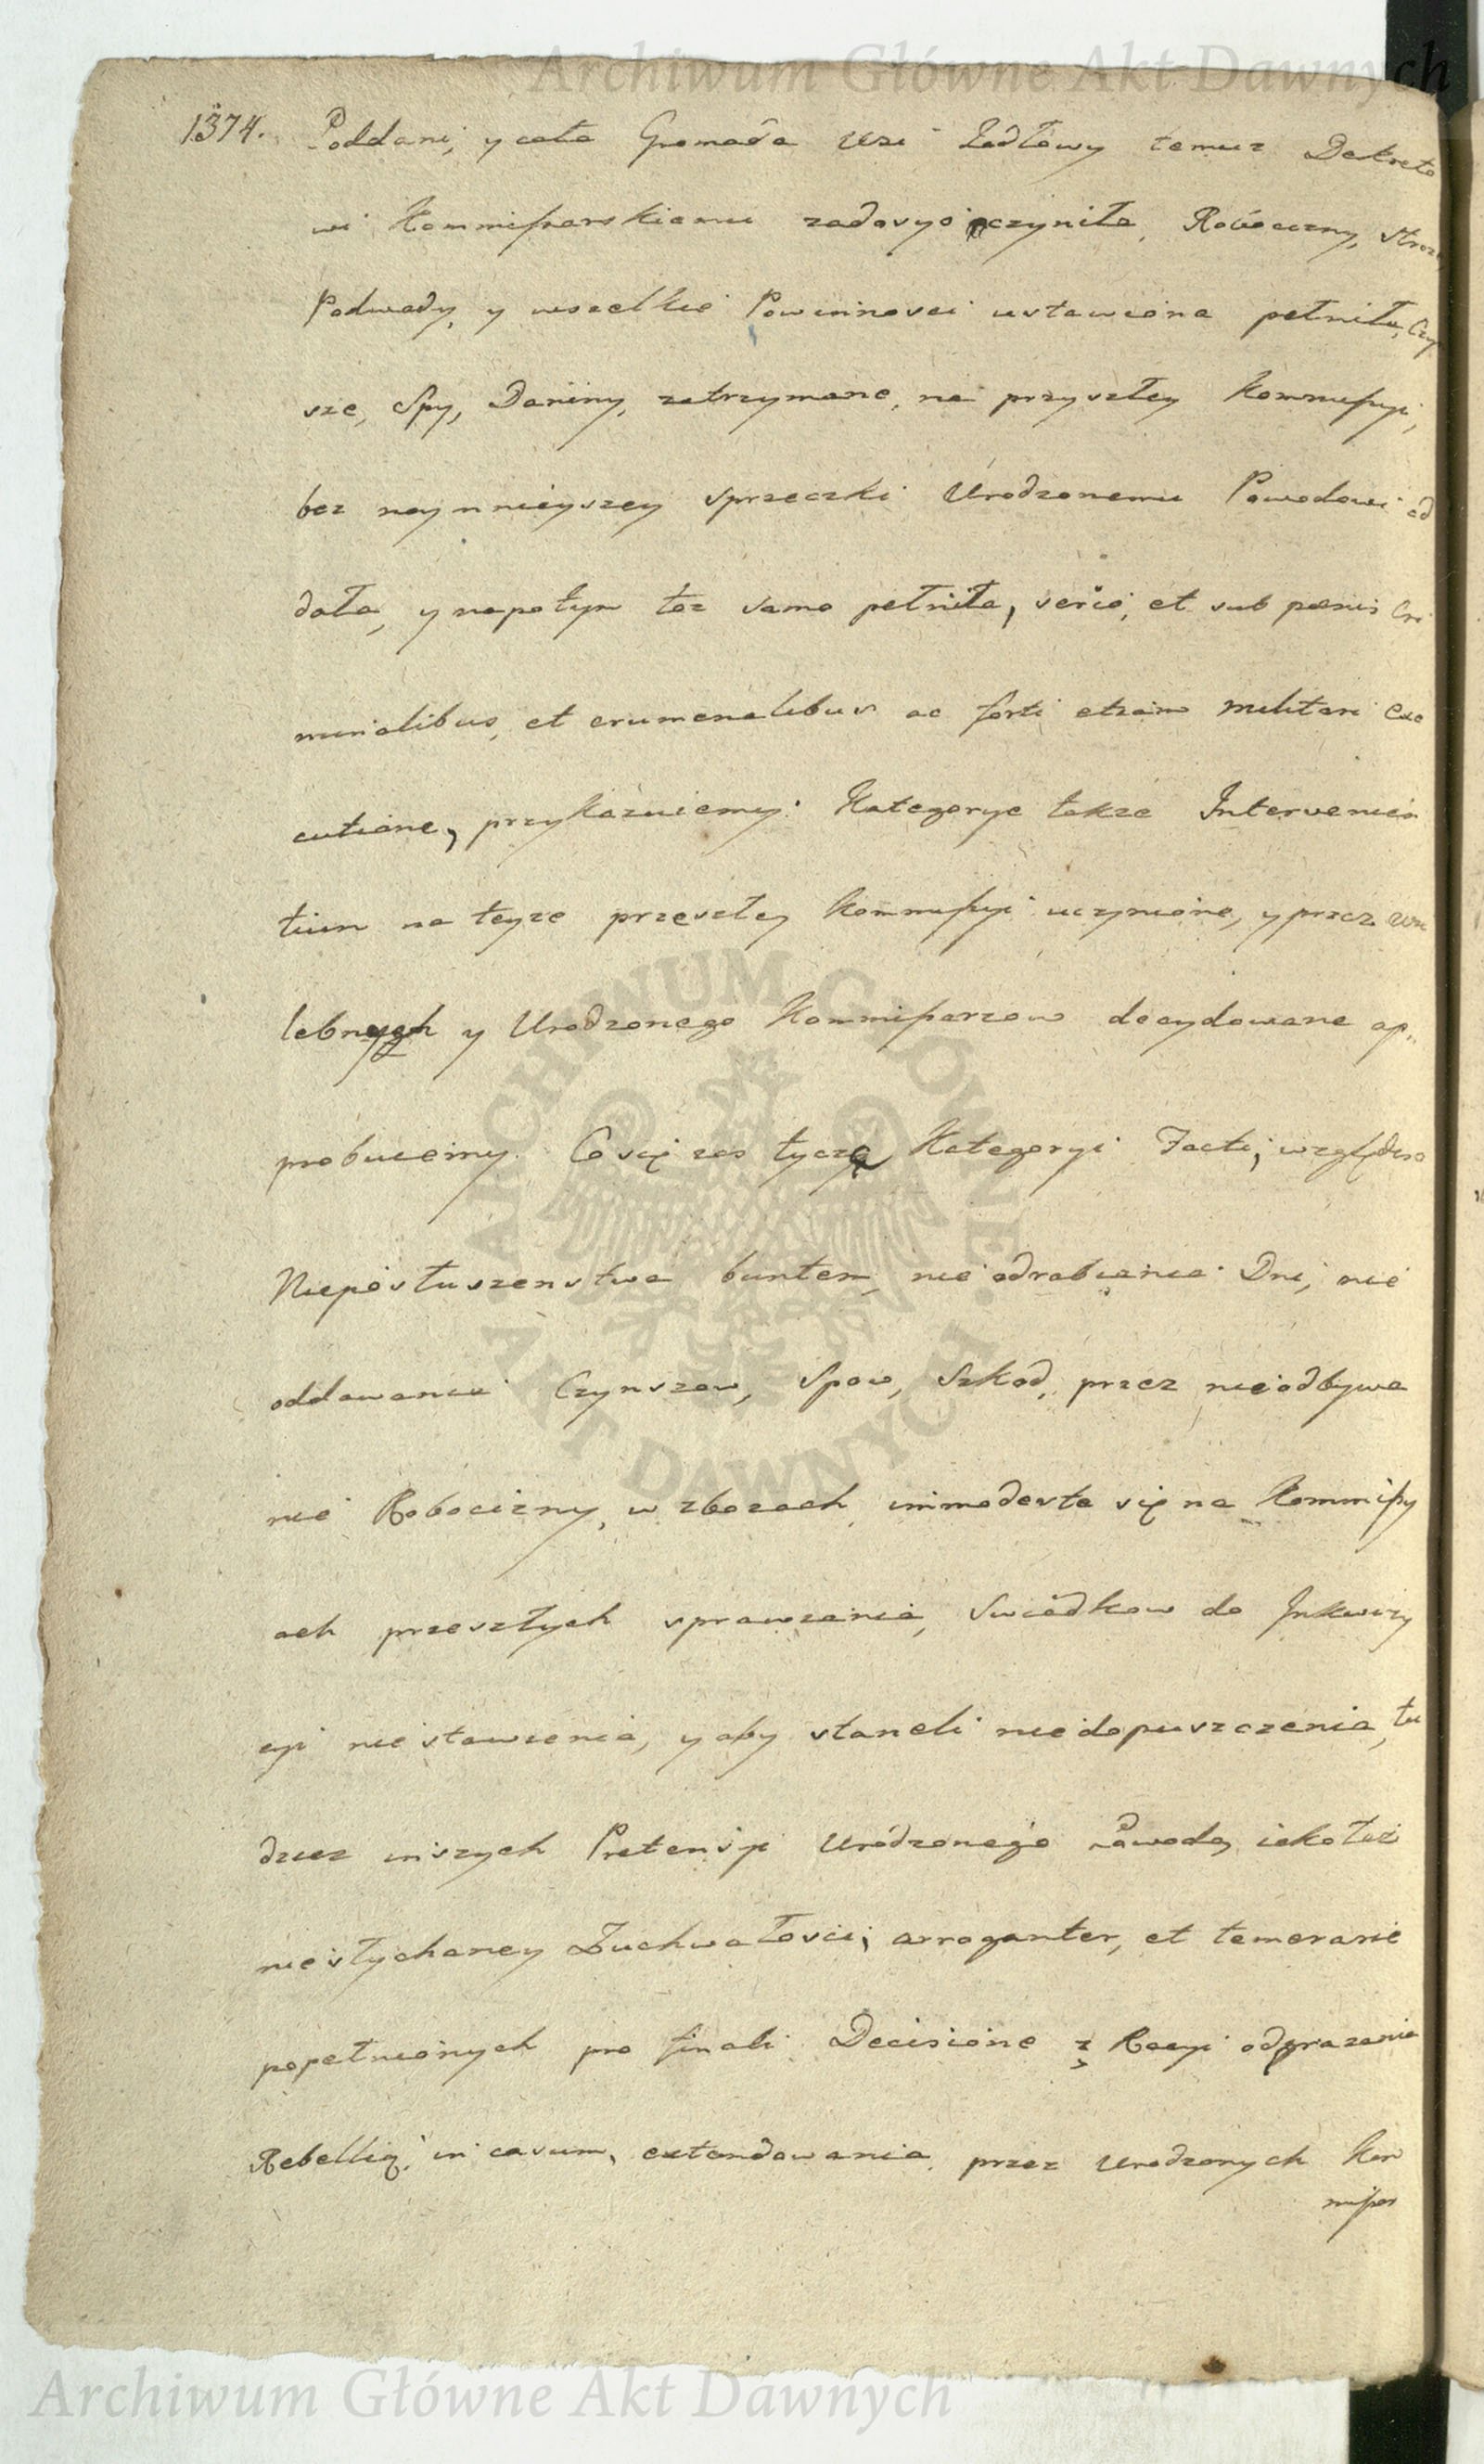 Archiwum Główne Akt Dawnych
1374. Poddani, y cała Gromada Wsi Zadłowy temuz Dekreto
wi Kommissarskiemu zadosyc uczyniła, Robocizny, stroze
Podwody, y wszelkie Powinnosci ustawione pełniła, Czyn
sze, Spy, Daniny, zatrzymane, na przyszłey Kommissyi,
bez naymnieyszey sprzeczki Urodzonemu Powodowi od
dała, y napotym toz samo pełniła, serio, et sub poenis Cri
minalibus, et crumenalibus ac forti etiam militari Exe
cutione, przykazuiemy. Kategorye takze Intervenien
tium na teyze przeszłey Kommissyi uczynione, y przez Wie
lebnych y Urodzonego Kommissarzow decydowane ap„
probuiemy. Co się zas tycze Kategoryi Facti, względem
Nieposłuszenstwa buntem, nieodrabiania Dni, nie
oddawania Czynszow, Spow, Szkod, przez nieodbywa
nie Robocizny, w zbozach, immodeste się na Kommissy
ach przeszłych sprawienia, Swiadkow do Inkwizy
cyi niestawienia, y aby staneli niedopuszczenia, tu
dziez inszych Pretensyi Urodzonego Powoda, iakotez
niesłychaney Zuchwałosci, arroganter, et temerarie
popełnionych pro finali Decisione z Racyi odgrazania
Rebellią, in casum, extendowania przez Urodzonych Kom
missar
ARCHIWUM GŁÓWNE · AKT DAWNYCH ·
Archiwum Główne Akt Dawnych